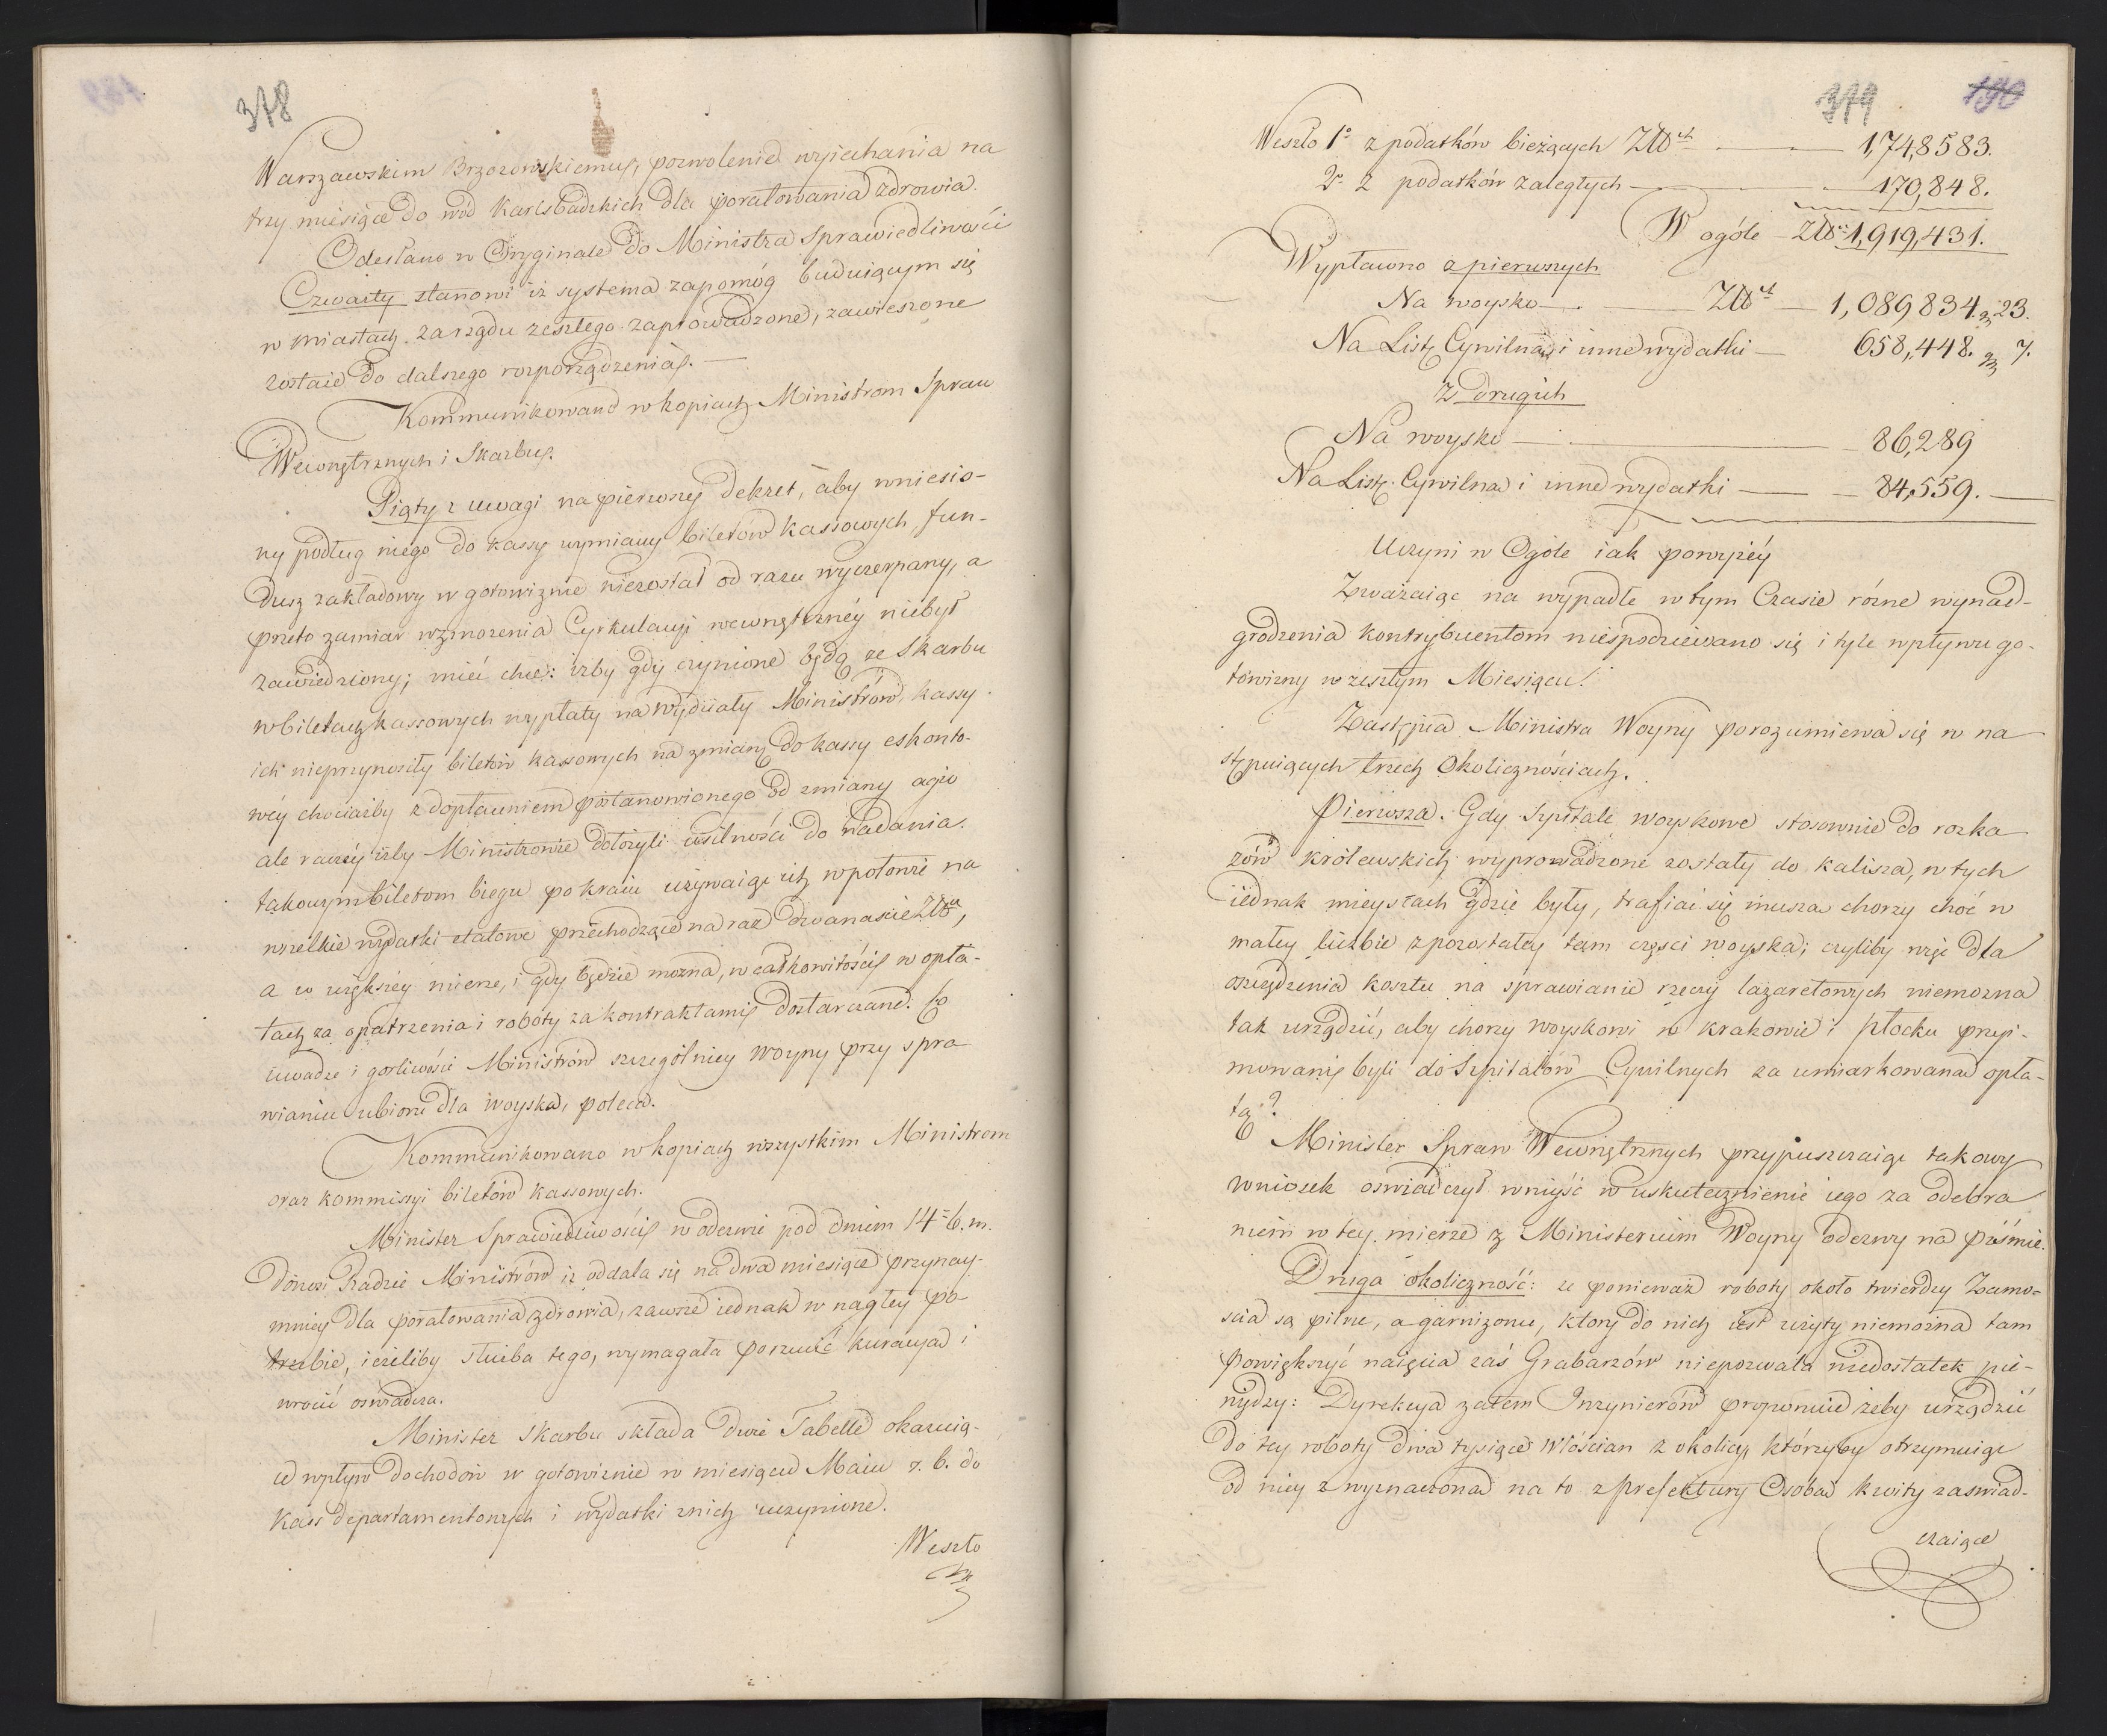 378
Warszawskim Brzozowskiemu, pozwolenie wyjechania na
trzy miesiące do wód Karlsbadzkich dla poratowania zdrowia.
Odesłano w Oryginale do Ministra Sprawiedliwości
Czwarty stanowi iż systema zapomóg buduiącym się
w miastach zarządu zeszłego zaprowadzone, zawieszone
zostaie do dalszego rozporządzenia. —
Kommunikowano w kopiach Ministrom Spraw
Wewnętrznych i Skarbu.
Piąty z uwagi na pierwszy Dekret, aby wniesio-
ny podług niego do kassy wymiany biletów kassowych, fun-
dusz zakładowy w gotowiznie niezostał od razu wyczerpany, a
przeto zamiar wzmożenia Cyrkulacyi wewnętrznéy niebył
zawiedziony; mieć chce: iżby gdy czynione będą ze Skarbu
w biletach kassowych wypłaty na wydziały Ministrów, kassy
ich nieprzynosiły biletów kassowych na zmianę do kassy eskonto-
wéy chociażby z dopłaceniem postanowionego od zmiany agio
ale raczéy iżby Ministrowie dołożyli usilności do nadania
takowym biletom biegu po kraiu używaiąc ich w połowie na
wszelkie wydatki etatowe przechodzące na raz dwanaście Złtt,
a w większéy mierze, i gdy będzie można, w całkowitości w opła-
tach za opatrzenia i roboty za kontraktami dostarczane. Co
uwadze i gorliwości Ministrów szczególniey Woyny przy spra
wianiu ubioru dla Woyska, poleca.
Kommunikowano w kopiach wszystkim Ministrom
oraz kommissyi biletów kassowych.
Minister Sprawiedliwości w odezwie pod dniem 14= b. m.
donosi Radzie Ministrów iż oddala się na dwa miesiące przynay-
mniey dla poratowania zdrowia, zawsze iednak w nagłey po-
trzebie, ieżeliby służba tego, wymagała porzucić kuracya i
wrócić oświadcza.
Minister Skarbu składa dwie Tabelle okazuią-
ce wpływ dochodów w gotowiznie w miesiącu Maiu r. b. do
Kass departamentowych i wydatki z nich uczynione.
Weszło
379 190
Weszło 1° z podatków bieżących Złtt — 1,748583.
2° z podatków zaległych — 170,848.
W ogóle — Złtt 1,919,431.
Wypłacono z pierwszych
Na woysko — Złtt — 1,089834. gr 23.
Na Listę Cywilną i inne wydatki — 658,448. gr 7.
Z drugich
Na woysko — 86,289
Na Listę Cywilna i inne wydatki — 84,559. —
Uczyni w Ogóle iak powyżéy
Zważaiąc na wypadłe w tym Czasie różne wynad-
grodzenia kontrybuentom niespodziewano się i tyle wpływu go-
towizny w zeszłym Miesiącu.
Zastępca Ministra Woyny porozumiewa się w na
stępuiących trzech okolicznościach.
Pierwsza. Gdy Szpitale woyskowe stosownie do rozka
zów królewskich wyprowadzone zostały do Kalisza, w tych
iednak mieyscach gdzie były, trafiać się musza chorzy choć w
małey liczbie z pozostałey tam części woyska; czyliby więc dla
oszczędzenia kosztu na sprawianie rzeczy lazaretowych niemożna
tak urządzić, aby chorzy woyskowi w Krakowie i Płocku przyi-
mowani byli do Szpitalów Cywilnych za umiarkowana opła-
tą?
Minister Spraw Wewnętrznych przypuszczaiąc takowy
wniosek oświadczył wniyść w uskutecznienie iego za odebra
niem w tey mierze z Ministerium Woyny odezwy na piśmie.
Druga okoliczność: że ponieważ roboty około twierdzy Zamo-
scia są pilne, a garnizonu, który do nich iest użyty niemożna tam
powiększyć naięcia zaś Grabarzów niepozwala niedostatek pie-
niędzy: Dyrekcya zatem Inżynierów proponuie żeby urządzić
do tey roboty dwa tysiące Włościan z okolicy, którzyby otrzymuiąc
od niey z wyznaczona na to z prefektury Osoba kwity zaświad-
czaiące